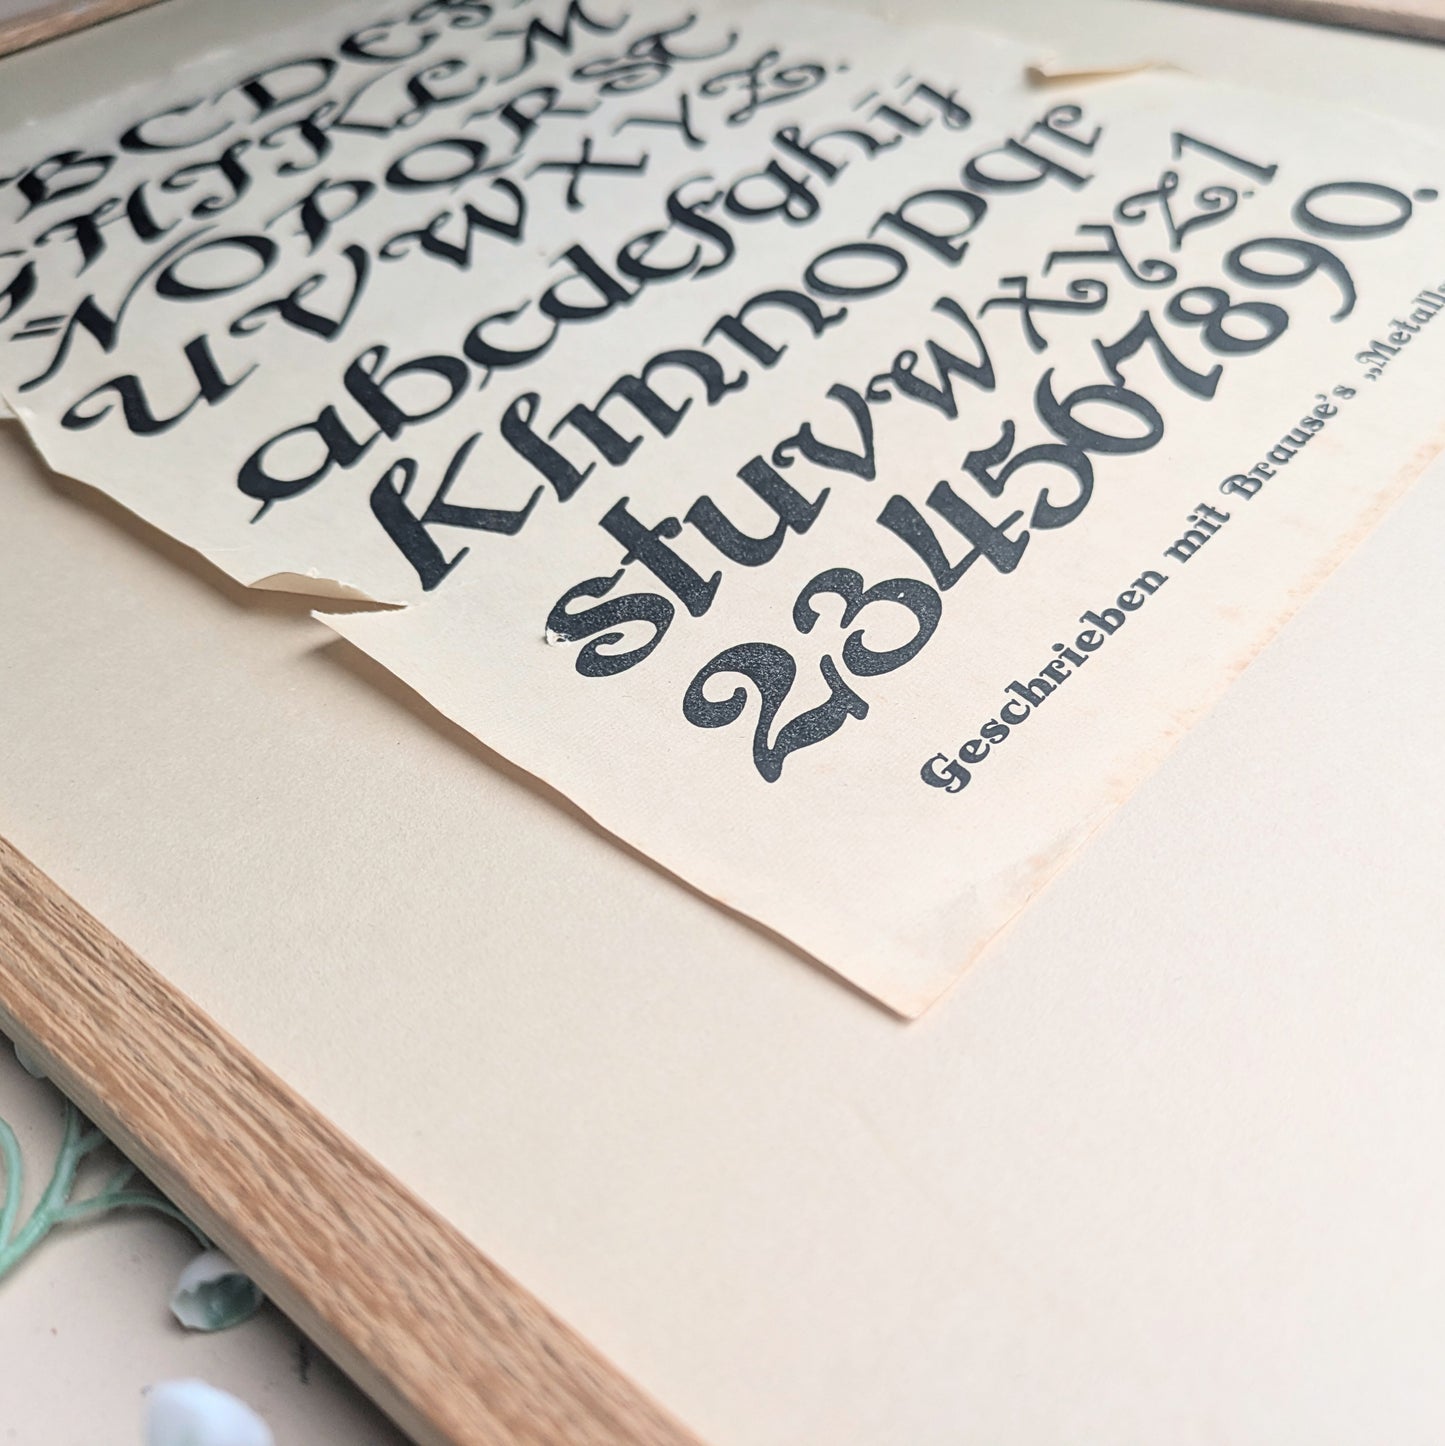 B C D E S
G H I K L M
N O P Q R S T
U V W X Y Z.
abcdefghij
klmnopqr
stuvwxyz.1
234567890.
Geschrieben mit Brause's